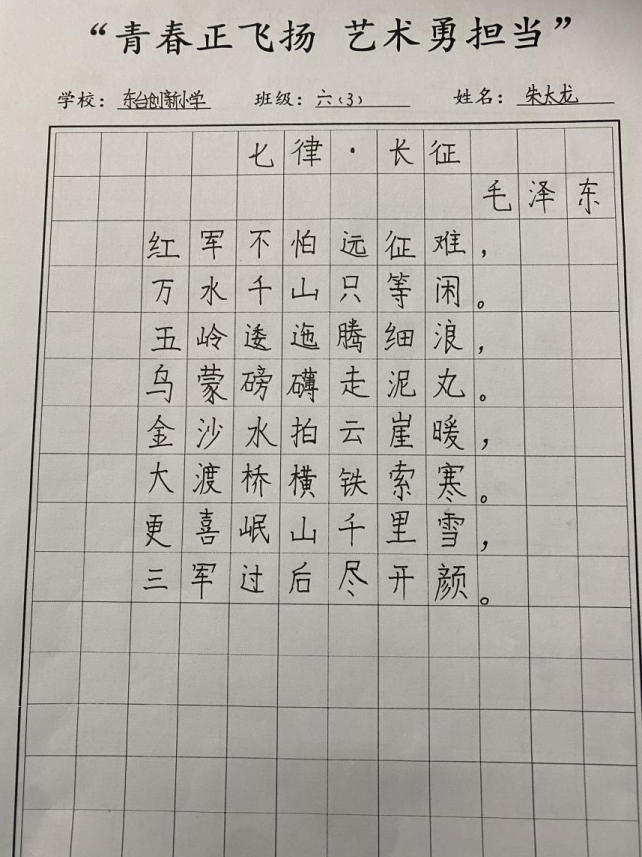 “青春正飞扬 艺术勇担当”
学校：东台创新小学 班级：六（3） 姓名：朱大龙
七律·长征
毛泽东
红军不怕远征难，
万水千山只等闲。
五岭逶迤腾细浪，
乌蒙磅礴走泥丸。
金沙水拍云崖暖，
大渡桥横铁索寒。
更喜岷山千里雪，
三军过后尽开颜。